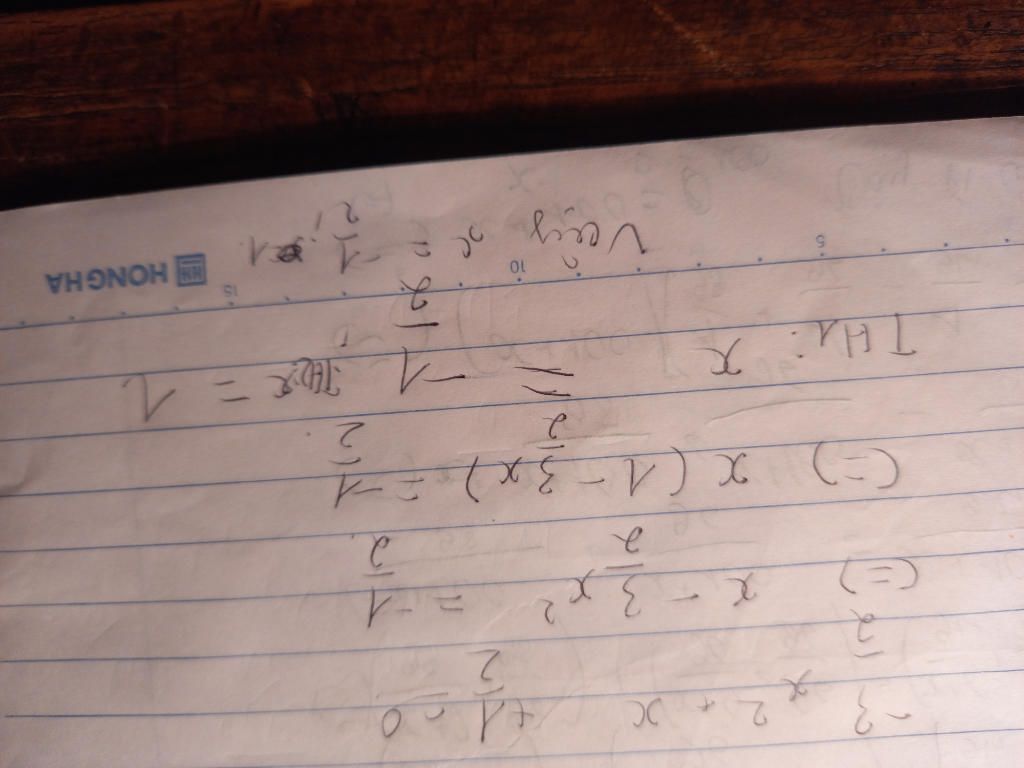 -3/2 x² + x + 1/2 = 0
(=) x - 3/2 x² = -1/2
(=) x (1 - 3/2 x) = -1/2
TH1: x = -1/2 TH2: x = 1
Vậy x = -1/2; 1.
5 10 15
HONG HA